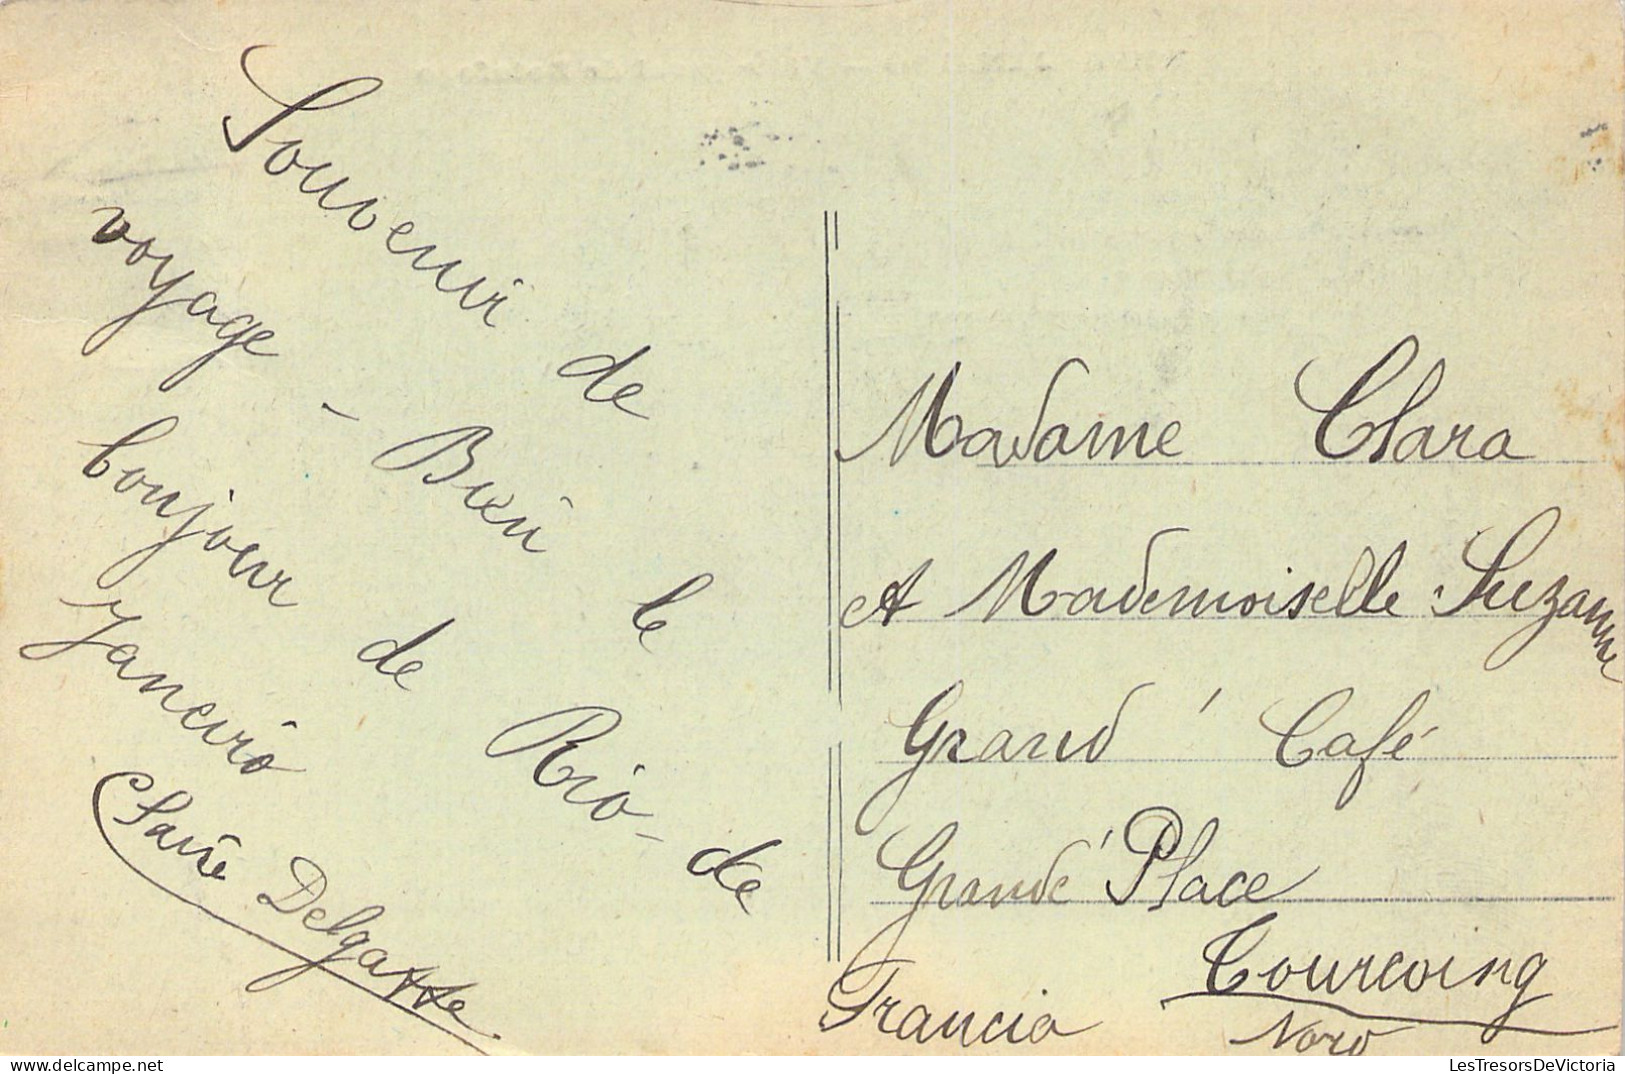 Souvenir de
voyage - Bien le
bonjour de Rio-de
Janeiro
Claire Delgatte
Madame Clara
et Mademoiselle Suzanne
Grand Café
Grande Place
Tourcoing
Nord
Francia
LesTresorsDeVictoria